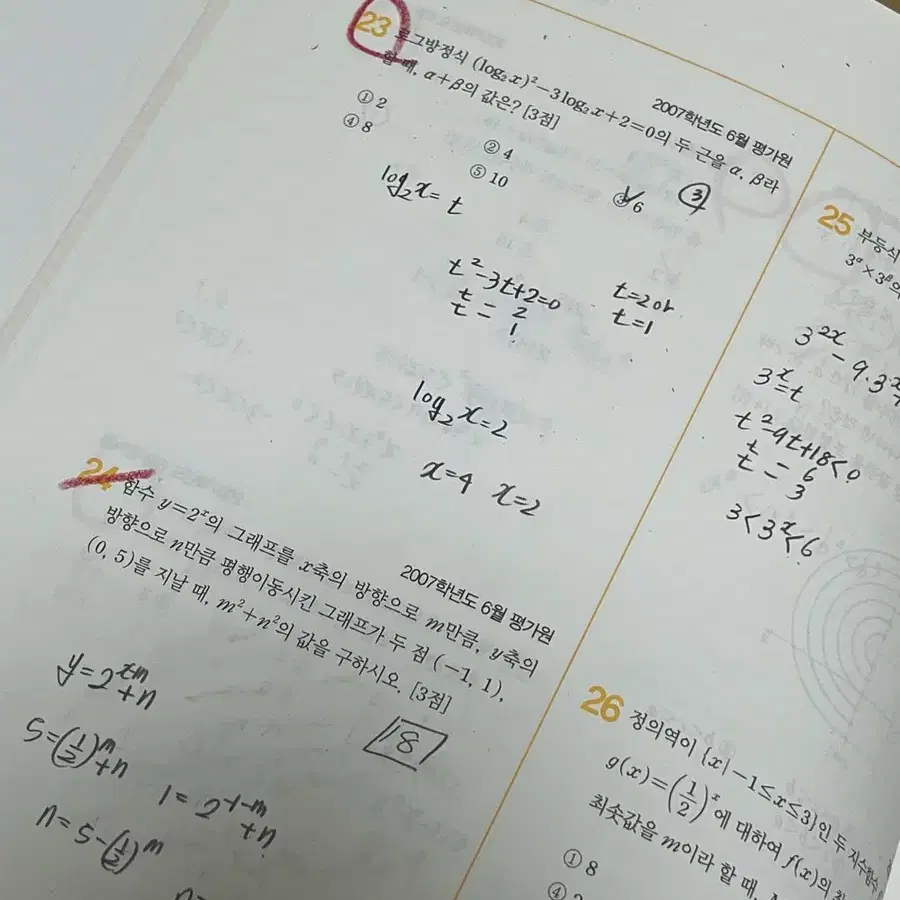 23
2007학년도 6월 평가원
로그방정식 (log₂x)²−3log₂x+2=0의 두 근을 α, β라
할 때, α+β의 값은? [3점]
① 2
② 4
③ 6
④ 8
⑤ 10
③
log₂x=t
t²-3t+2=0
t = 2
t 1
t=2 or
t=1
log₂x=2
x=4 x=2
24
2007학년도 6월 평가원
함수 y=2ˣ의 그래프를 x축의 방향으로 m만큼, y축의
방향으로 n만큼 평행이동시킨 그래프가 두 점 (−1, 1),
(0, 5)를 지날 때, m²+n²의 값을 구하시오. [3점]
8
(1/2)ᵐ+n=5
2⁻¹⁻ᵐ+n=1
n=5-(1/2)ᵐ
25
부등식
3^α×3^β의
3²ˣ-9·3ˣ
3ˣ=t
t²-9t+18<0
t = 6
t 3
3<3ˣ<6
26
정의역이 {x|−1≤x≤3}인 두 지수함수
g(x)=(1/2)ˣ에 대하여 f(x)의 최
최솟값을 m이라 할 때,
① 8
④